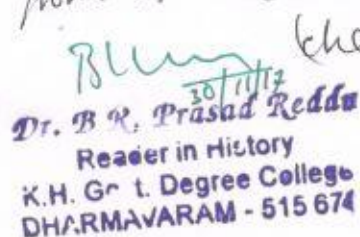 30/11/17
Dr. B R. Prasad Reddy
Reader in History
K.H. Gr t. Degree College
DHARMAVARAM - 515 674